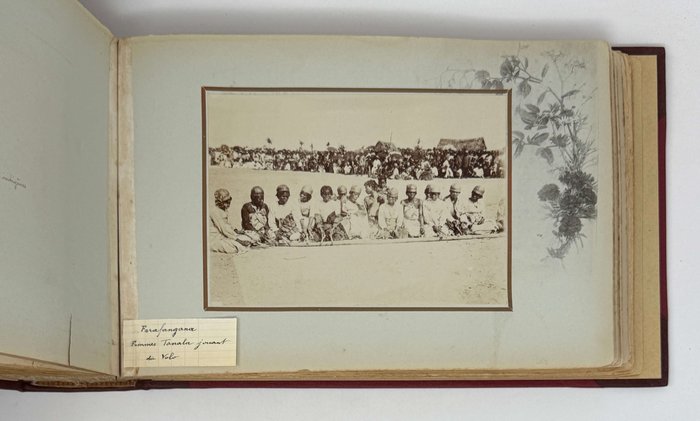 Farafangana
Femmes Tanala jouant
du Volo